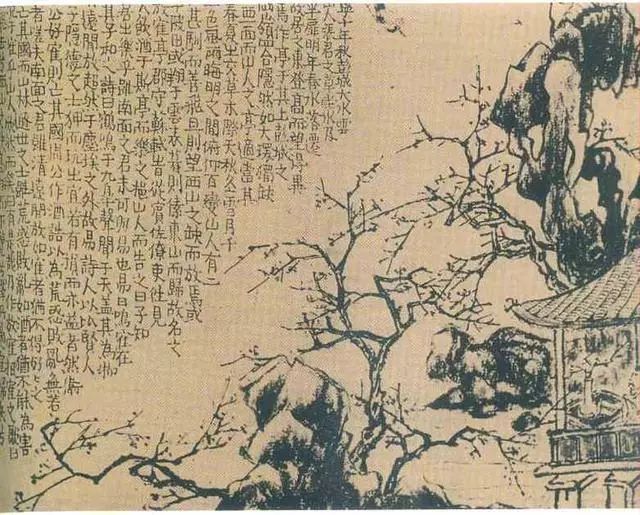 十年秋彭城大水雲
人張君之草堂水及
半扉明年春水落遷
故居之東登高而望得異
焉作亭于其上彭城之
岡嶺四合隱然如大環獨缺
西一面而山人之亭適當其
春夏之交草木際天秋冬雪月千
一色風雨晦明之間俯仰百變山人有二
甚馴而善飛旦則望西山之缺而放焉或
陂田或翔于雲表暮則傃東山而歸故名之
鶴亭郡守蘇軾時從賓佐僚吏往見
人飲酒于斯亭而樂之挹山人而告之曰子知
居之樂乎雖南面之君未可與易也易曰鳴鶴在
其子和之詩曰鶴鳴于九皋聲聞于天蓋其為物
遠閒放超然于塵埃之外故易詩人以比賢人
子隱德之士狎而玩之宜若有益而無損者然衛
公好鶴則亡其國周公作酒誥以為荒惑敗亂無若
者嗟夫南面之君雖清遠閒放如鶴者猶不得好之
亡其國而山林遯世之士雖荒惑敗亂如酒者猶不能為害